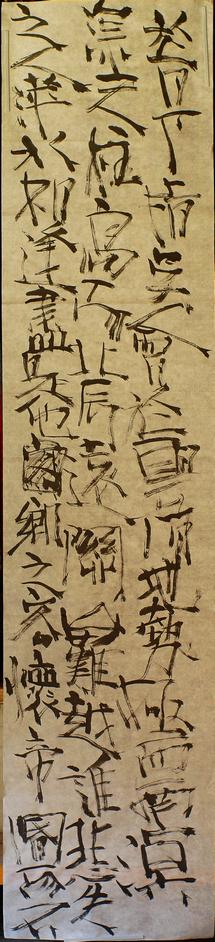 於日下指吳會於雲間地勢極而南溟
深天柱高而北辰遠關山難越誰悲失
之人萍水相逢盡是他國鄉之客懷帝閽而不